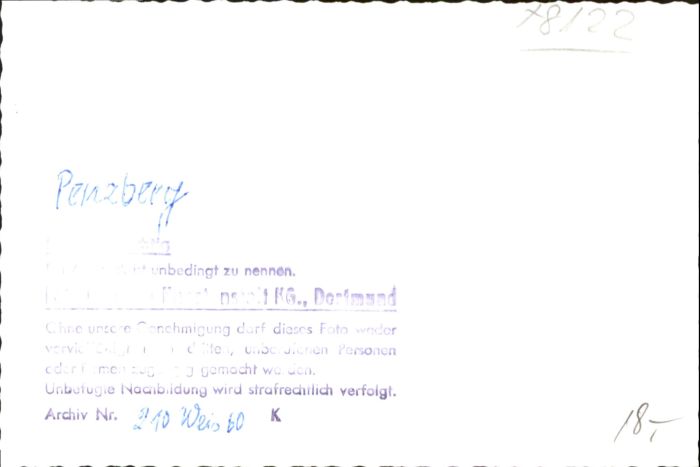 78/22
Penzberg
unbedingt zu nennen.
KG., Dortmund
Ohne unsere Genehmigung darf dieses Foto weder
unbefugten Personen
oder Firmen zugängig gemacht werden.
Unbefugte Nachbildung wird strafrechtlich verfolgt.
Archiv Nr. 210 Weis 60 K
18,-